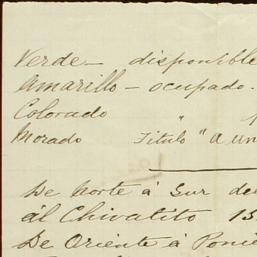 Verde — disponible
Amarillo — ocupado.
Colorado "
Morado Titulo "A un
De Norte á Sur de
ál Chivatito 15
De Oriente á Ponie